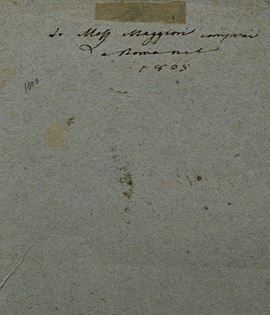 Io Mass Maggiori comprai
a Roma nel
1805
1010